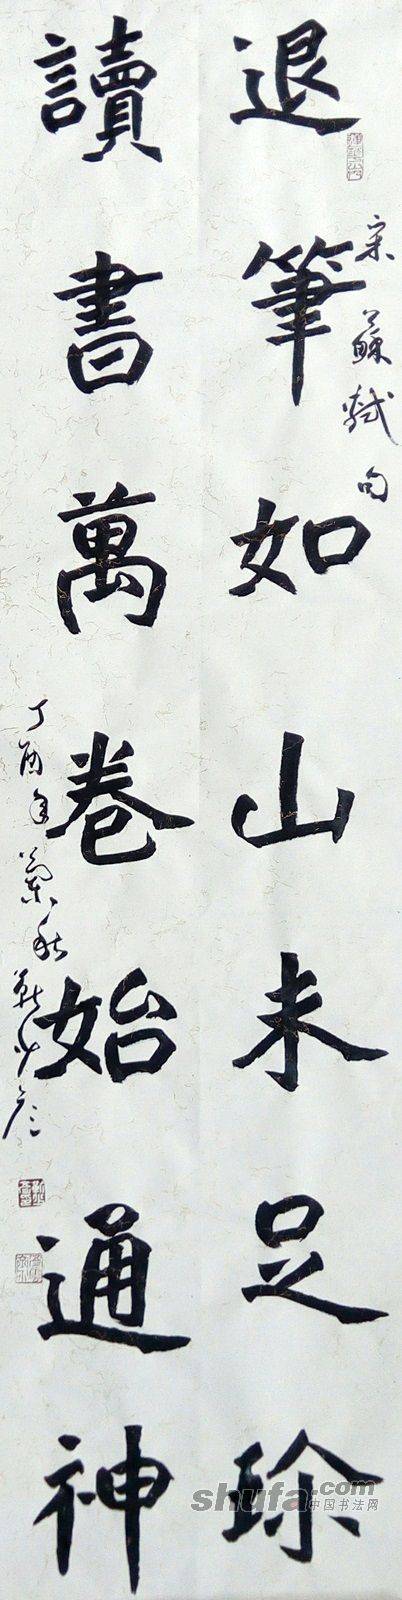 退筆如山未足珎
宋蘇軾句
讀書萬卷始通神
丁酉年蘭秋靳少彦
shufa.com
中国书法网